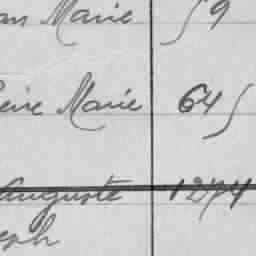 an Marie 59
eine Marie 645
Auguste 1274
eph